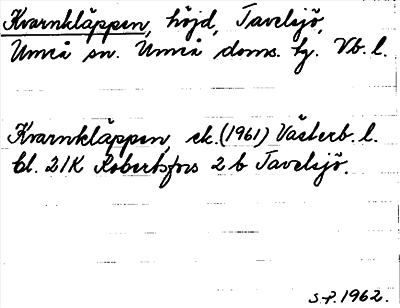 Kvarnkläppen, höjd, Tavelsjö,
Umeå sn. Umeå doms. tg. Vb. l.
Kvarnkläppen, ek. (1961) Västerb. l.
bl. 21K Robertsfors 2 b Tavelsjö.
S-P. 1962.